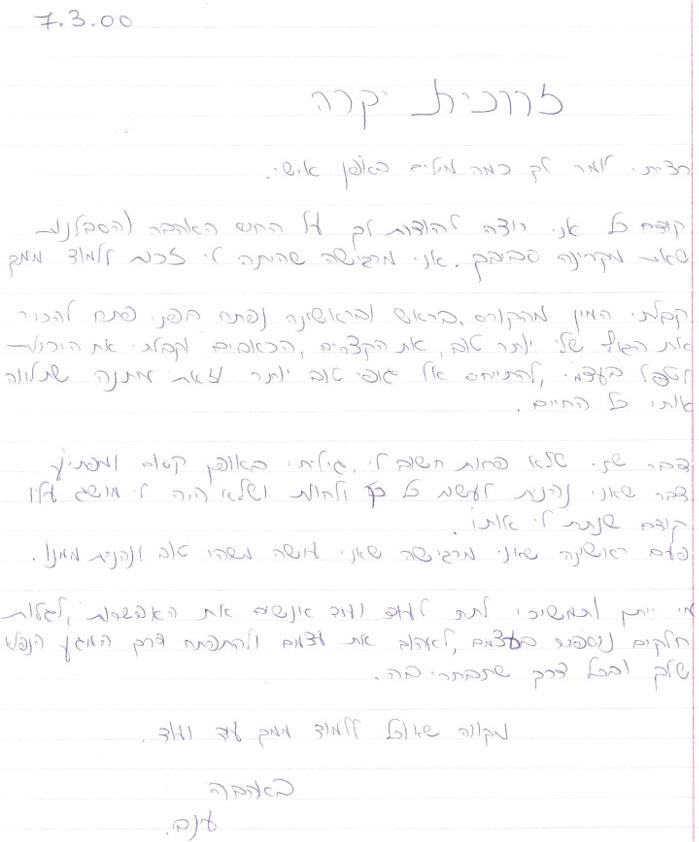 7.3.00
זרובית יקרה
רציתי לומר לך כמה מילים באופן אישי.
קודם כל אני רוצה להודות לך על החום האהבה והסבלנות
שאת מקרינה סביבך. אני מרגישה שהיתה לי זכות ללמוד ממך
קבלתי המון מהקורס, בראש ובראשונה נפתח בפני פתח להכיר
את הגוף שלי יותר טוב, את הקצרים, הכאובים וקבלתי את היכולת
לטפל בעצמי, להתייחס אל גופי טוב יותר וזאת מתנה שתלווה
אותי כל החיים.
דבר שני שלא פחות חשוב לי, גיליתי באופן קסום ומפתיע
דבר שאני נהנית לעשות כל כך ולחוות ושלא היה לי מושג עליו
קודם שנתת לי אותו.
פעם ראשונה שאני מרגישה שאני עושה משהו טוב ונהנית ממנו.
מי ייתן ותמשיכי לתת לעוד ועוד אנשים את האפשרות, לגלות
חלקים נוספים בעצמם, לאהוב את עצמם ולהתפתח דרך המגע הנפלא
שלך ובכל דרך שתבחרי בה.
מקווה שאוכל ללמוד ממך עוד ועוד.
באהבה
ענב.